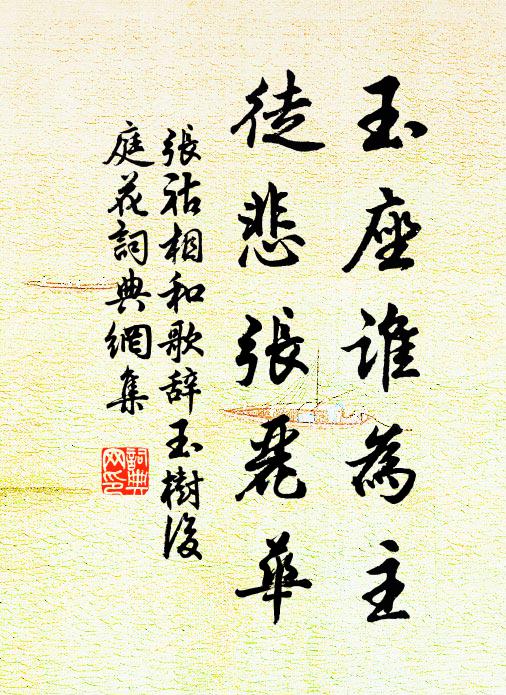 玉座誰為主
徒悲張麗華
張祜相和歌辞玉樹後
庭花詞典網集
詞典
网印